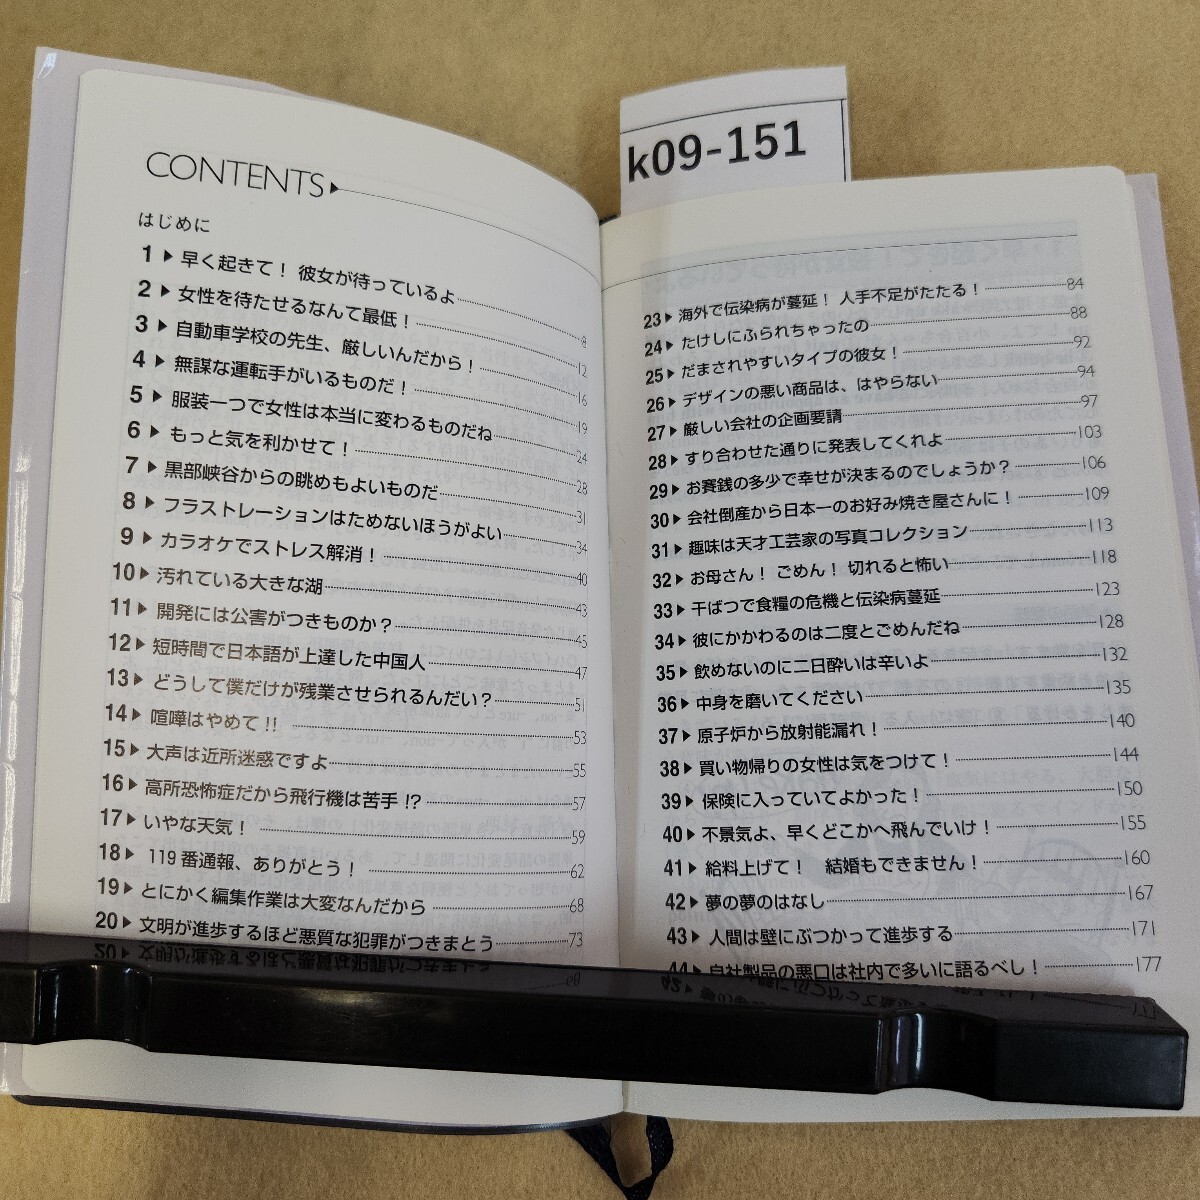 k09-151
CONTENTS
はじめに
1▶早く起きて！ 彼女が待っているよ 8
2▶女性を待たせるなんて最低！ 12
3▶自動車学校の先生、厳しいんだから！ 16
4▶無謀な運転手がいるものだ！ 19
5▶服装一つで女性は本当に変わるものだね 24
6▶もっと気を利かせて！ 28
7▶黒部峡谷からの眺めもよいものだ 31
8▶フラストレーションはためないほうがよい 34
9▶カラオケでストレス解消！ 40
10▶汚れている大きな湖 43
11▶開発には公害がつきものか？ 45
12▶短時間で日本語が上達した中国人 47
13▶どうして僕だけが残業させられるんだい？ 51
14▶喧嘩はやめて!! 53
15▶大声は近所迷惑ですよ 55
16▶高所恐怖症だから飛行機は苦手!? 57
17▶いやな天気！ 59
18▶119番通報、ありがとう！ 62
19▶とにかく編集作業は大変なんだから 68
20▶文明が進歩するほど悪質な犯罪がつきまとう 73
23▶海外で伝染病が蔓延！ 人手不足がたたる！ 84
24▶たけしにふられちゃったの 88
25▶だまされやすいタイプの彼女！ 92
26▶デザインの悪い商品は、はやらない 94
27▶厳しい会社の企画要請 97
28▶すり合わせた通りに発表してくれよ 103
29▶お賽銭の多少で幸せが決まるのでしょうか？ 106
30▶会社倒産から日本一のお好み焼き屋さんに！ 109
31▶趣味は天才工芸家の写真コレクション 113
32▶お母さん！ ごめん！ 切れると怖い 118
33▶干ばつで食糧の危機と伝染病蔓延 123
34▶彼にかかわるのは二度とごめんだね 128
35▶飲めないのに二日酔いは辛いよ 132
36▶中身を磨いてください 135
37▶原子炉から放射能漏れ！ 140
38▶買い物帰りの女性は気をつけて！ 144
39▶保険に入っていてよかった！ 150
40▶不景気よ、早くどこかへ飛んでいけ！ 155
41▶給料上げて！ 結婚もできません！ 160
42▶夢の夢のはなし 167
43▶人間は壁にぶつかって進歩する 171
44▶自社製品の悪口は社内で多いに語るべし！ 177